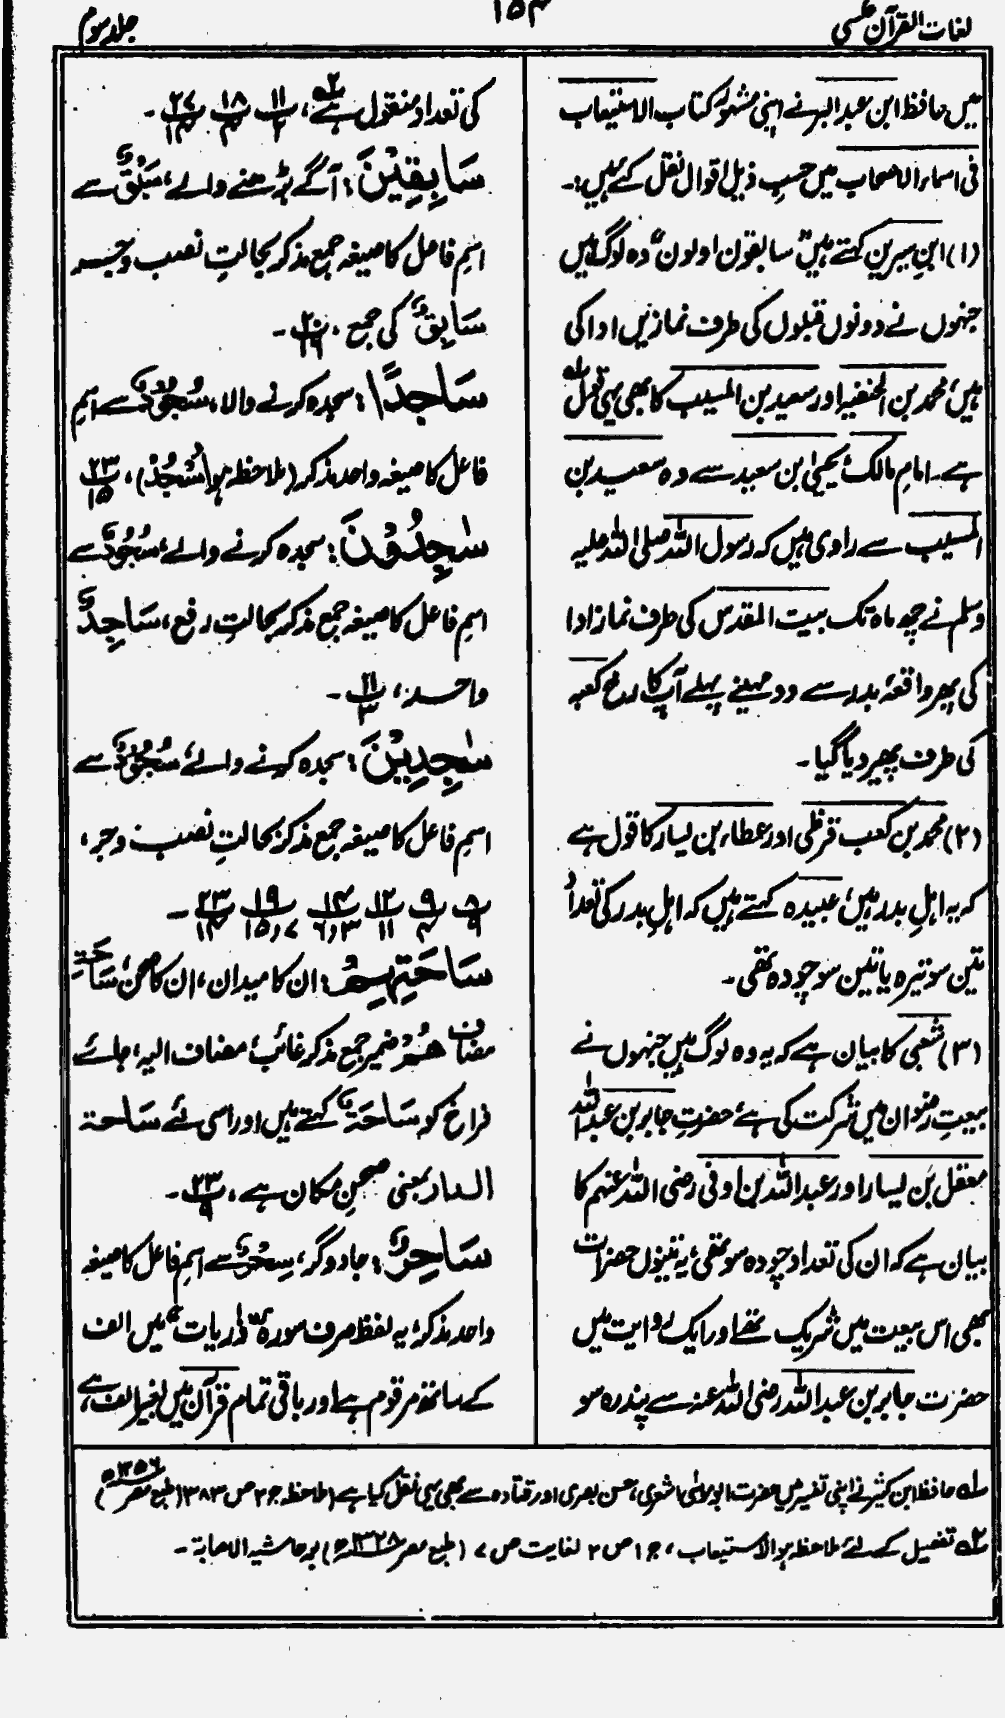 لغات القرآن عکسی
۱۵۴
جلد سوم
میں حافظ ابن عبدالبر نے اپنی مشہور کتاب الاستیعاب
فی اسماء الاصحاب میں حسبِ ذیل اقوال نقل کئے ہیں:۔
(۱) ابنِ سیرین کہتے ہیں "سابقون اولون" وہ لوگ ہیں
جنہوں نے دونوں قبلوں کی طرف نمازیں ادا کی
ہیں، محمد بن الحنفیہ اور سعید بن المسیب کا بھی یہی قول
ہے۔ امام مالک، یحییٰ بن سعید سے وہ سعید بن
المسیب سے راوی ہیں کہ رسول اللہ صلی اللہ علیہ
وسلم نے چھ ماہ تک بیت المقدس کی طرف نماز ادا
کی پھر واقعۂ بدر سے دو مہینے پہلے آپ کا رخ کعبہ
کی طرف پھیر دیا گیا۔
(۲) محمد بن کعب قرظی اور عطاء بن یسار کا قول ہے
کہ یہ اہلِ بدر ہیں، عبیدہ کہتے ہیں کہ اہلِ بدر کی تعداد
تین سو تیرہ یا تین سو چودہ تھی۔
(۳) شعبی کا بیان ہے کہ یہ وہ لوگ ہیں جنہوں نے
بیعتِ رضوان میں شرکت کی ہے، حضرتِ جابر بن عبداللہ
معقل بن یسار اور عبداللہ بن اوفی رضی اللہ عنہم کا
بیان ہے کہ ان کی تعداد چودہ سو تھی، یہ تینوں حضرات
بھی اس بیعت میں شریک تھے اور ایک روایت میں
حضرت جابر بن عبداللہ رضی اللہ عنہ سے پندرہ سو
کی تعداد منقول ہے۲؎، پ ۱۱/۲ پ ۱۸/۴ پ ۲۷/۱۴ ۔
سَابِقِیْنَ: آگے بڑھنے والے، سَبْقٌ سے
اسمِ فاعل کا صیغہ جمع مذکر بحالتِ نصب و جر
سَابِقٌ کی جمع، پ ۲۰/۱۶ ۔
سَاجِدًا: سجدہ کرنے والا، سُجُوْدٌ سے اسمِ
فاعل کا صیغہ واحد مذکر (ملاحظہ ہو اُسْجُدْ)، پ ۲۳/۱۵
سٰجِدُوْنَ: سجدہ کرنے والے، سُجُوْدٌ سے
اسمِ فاعل کا صیغہ جمع مذکر بحالتِ رفع، سَاجِدٌ
واحد، پ ۱۱/۳ ۔
سٰجِدِیْنَ: سجدہ کرنے والے، سُجُوْدٌ سے
اسمِ فاعل کا صیغہ جمع مذکر بحالتِ نصب و جر،
پ ۸/۹ پ ۹/۴ پ ۱۲/۱۱ پ ۱۴/۳،۶ پ ۱۹/۷،۱۵ پ ۲۳/۱۴ ۔
سَاحَتِہِمْ: ان کا میدان، ان کا صحن، سَاحَۃِ
مضاف ھُمْ ضمیر جمع مذکر غائب، مضاف الیہ، جائے
فراخ کو سَاحَۃٌ کہتے ہیں اور اسی لئے سَاحۃ
الدار بمعنی صحنِ مکان ہے، پ ۲۳/۹ ۔
سَاحِرٌ: جادوگر، سِحْرٌ سے اسمِ فاعل کا صیغہ
واحد مذکر، یہ لفظ صرف سورہ "ذٰریات" میں الف
کے ساتھ مرقوم ہے اور باقی تمام قرآن میں بغیر الف ہے،
۱؎ حافظ ابن کثیر نے اپنی تفسیر میں حضرت ابو موسیٰ اشعری، حسن بصری اور قتادہ سے بھی یہی نقل کیا ہے (ملاحظہ ج ۲ ص ۳۸۳ (طبع مصر ۱۳۵۶ھ)
۲؎ تفصیل کے لئے ملاحظہ ہو الاستیعاب، ج ۱ ص ۲ لغایت ص ۷ (طبع مصر ۱۳۲۸ھ) بر حاشیہ الاصابۃ۔